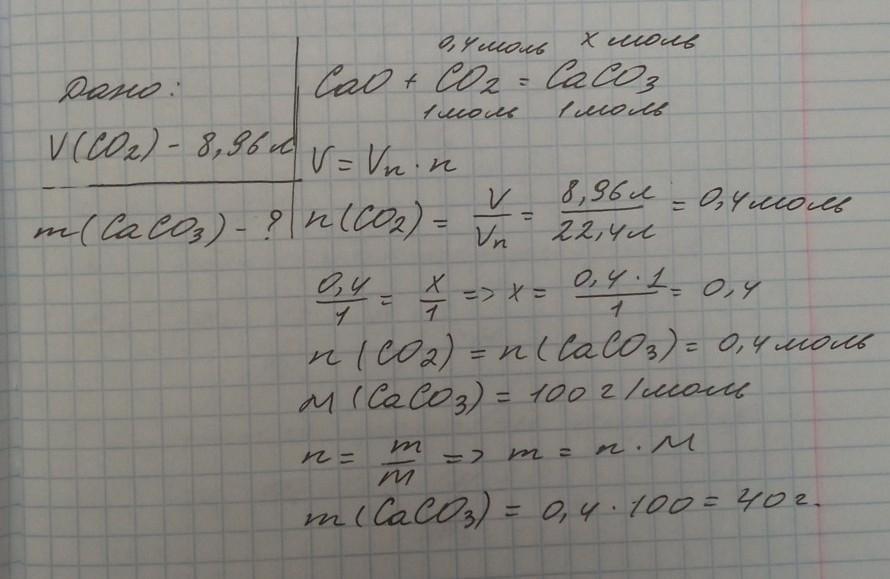 Дано:
V(CO2) - 8,96 л
m(CaCO3) - ?
0,4 моль x моль
CaO + CO2 = CaCO3
1 моль 1 моль
V = Vn · n
n(CO2) = V/Vn = 8,96 л/22,4 л = 0,4 моль
0,4/1 = x/1 => x = 0,4 · 1/1 = 0,4
n(CO2) = n(CaCO3) = 0,4 моль
M(CaCO3) = 100 г/моль
n = m/M => m = n · M
m(CaCO3) = 0,4 · 100 = 40 г.